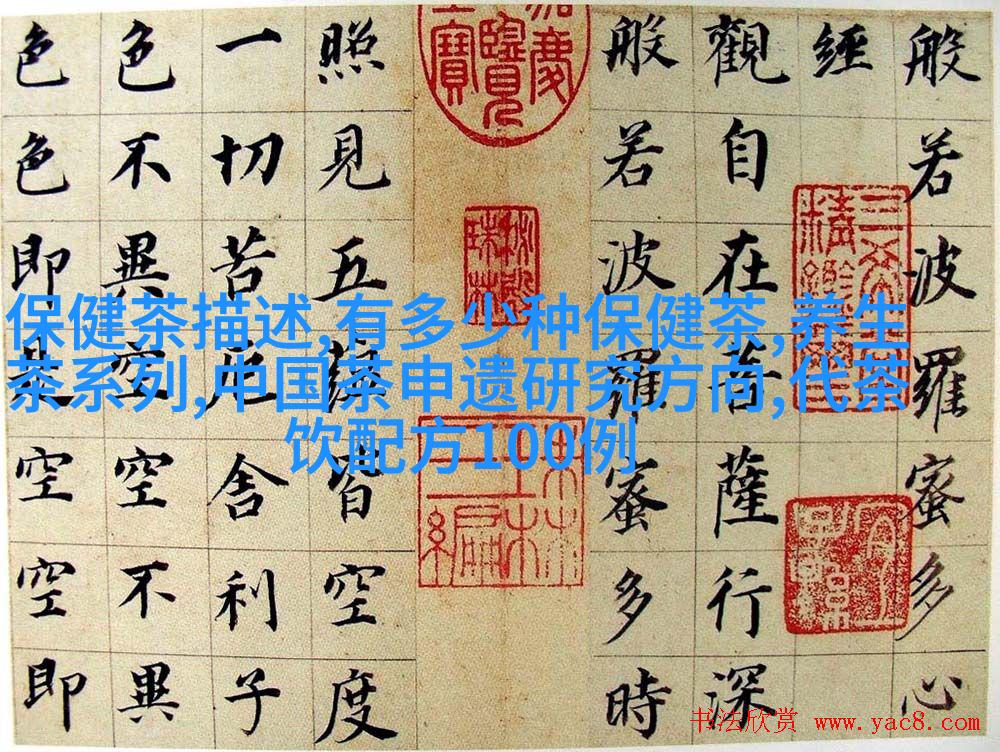 般若波羅蜜多心
經
觀自在菩薩行深
般若波羅蜜多時
照見五蘊皆空度
一切苦厄舍利子
色不異空空不異
色色即是空空即
保健茶描述,有多少种保健茶,养生
茶系列,中国茶申遗研究方向,代茶
饮配方100例
三希堂精鑑璽
宜子孫
书法欣赏 www.yac8.com